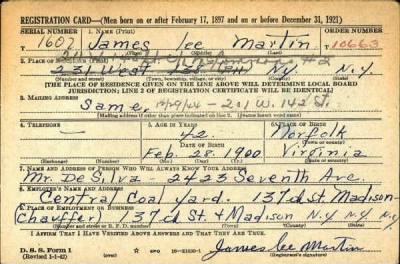 REGISTRATION CARD—(Men born on or after February 17, 1897 and on or before December 31, 1921)
SERIAL NUMBER 1. NAME (Print) ORDER NUMBER
1607 James Lee Martin 10663
2. PLACE OF RESIDENCE (Print)
231 West N.Y. N.Y.
(Number and street) (Town, township, village, or city) (County) (State)
[THE PLACE OF RESIDENCE GIVEN ON THE LINE ABOVE WILL DETERMINE LOCAL BOARD
JURISDICTION; LINE 2 OF REGISTRATION CERTIFICATE WILL BE IDENTICAL]
3. MAILING ADDRESS
Same, 201 W. 142 St.
[Mailing address if other than place indicated on line 2. If same insert word same]
4. TELEPHONE 5. AGE IN YEARS 6. PLACE OF BIRTH
— 42 Norfolk
DATE OF BIRTH (Town or county)
Feb. 28. 1900 Virginia
(Exchange) (Number) (Mo.) (Day) (Yr.) (State or country)
7. NAME AND ADDRESS OF PERSON WHO WILL ALWAYS KNOW YOUR ADDRESS
Mr. De Silva - 2423 Seventh Ave.
8. EMPLOYER'S NAME AND ADDRESS
Central Coal Yard. 137d St. Madison
9. PLACE OF EMPLOYMENT OR BUSINESS
(Chauffer) 137d St. & Madison N.Y. N.Y. N.Y.
(Number and street or R. F. D. number) (Town) (County) (State)
I AFFIRM THAT I HAVE VERIFIED ABOVE ANSWERS AND THAT THEY ARE TRUE.
D. S. S. Form 1
(Revised 1-1-42) GPO 16—21630-1 James Lee Martin
(Registrant's signature)